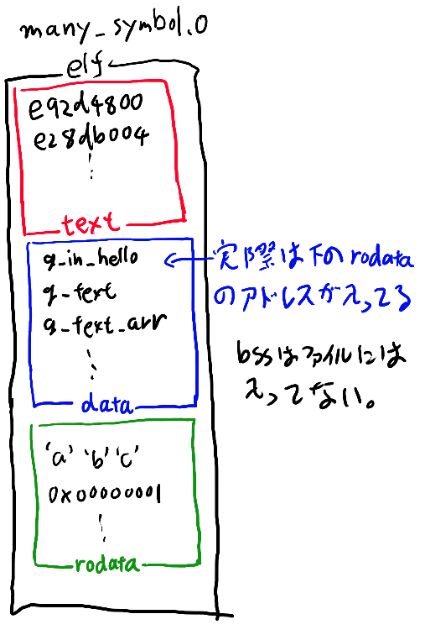 many_symbol.o
elf
e92d4800
e28db004
text
g_in_hello
g_text
g_text_arr
data
実際は下のrodata
のアドレスが入ってる
bssはファイルには
入ってない。
'a' 'b' 'c'
0x00000001
rodata